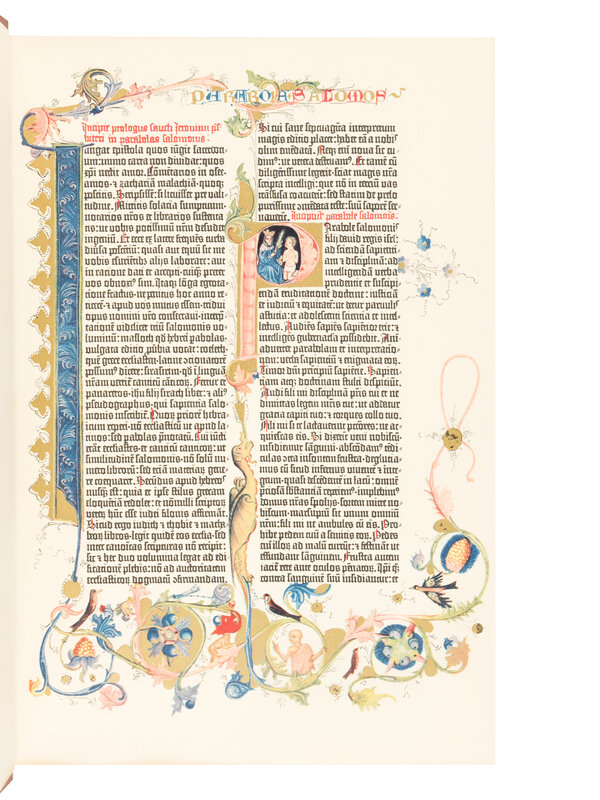 PARABOLE SALOMOIS
Incipit prologus sancti Jeronimi p̄s
biteri in parabolas salomonis.
Iungat epistola quos iūgit sacerdoti-
um: immo carta non diuidat: quos
xp̄i nectit amor. Cōmētarios in osee.
amos. ⁊ zachariā malachiā. quoq;
poscitis. Scripsissē: si licuisset pre vali-
tudine. Mittitis solacia sumptuum.
notarios nr̄os et librarios sustenta-
tis: ut vobis potissimū nr̄m desudet
ingeniū. Et ecce ex latere frequēs turba
diūsa poscentiū: quasi aut equū sit me
vobis esurientib; alijs laborare: aut
in ratione dati et accepti. cuiq; preter
vos obnoxi⁹ sim. Itaq; lōga egrota-
tione fractus. ne penitus hoc anno re-
ticerē. ⁊ apud vos mutus essem. tridui
opus nomini vr̄o consecraui. interp̄-
tationē videlicet triū salomonis vo-
luminū: masloth qd̄ hebrei pabolas.
vulgata editio p̄ubia vocat: coeleth.
quē grece ecclesiasten. latine cōcionatorē
possum⁹ dicere: sirasirim. qd̄ ī linguā
nr̄am vertit̄ canticū cāticoȝ. Fertur et
panaretos. ihū filij sirach liber: ⁊ ali⁹
pseudographus. qui sapientia salo-
monis inscribit̄. Quoȝ priorē hebra-
icum reperi. nō ecclesiasticū ut apud la-
tinos: sed pabolas p̄notatū. Cui iūcti
erāt ecclesiastes. et canticū canticoȝ: ut
similitudinē salomonis. nō solū nu-
mero libroȝ: sed etiā materiaȝ gene-
re coequaret. Secūdus apud hebreos
nusq̄ est: quia et ipse stilus grecam
eloquētiā redolet: et nonnulli scriptoȝ
veteȝ hūc esse iudei filonis affirmāt.
Sicud ergo iudith ⁊ thobie ⁊ macha-
beoȝ libros. legit quidē eos ecclesia. sed
inter canonicas scripturas nō recipit:
sic ⁊ hec duo volumina legat ad edi-
ficationē plebis: nō ad auctoritatem
ecclesiasticoȝ dogmatū ɔfirmandam.
Si cui sane septuaginta interpretum
magis editio placet: habet eā a nobis
olim emēdatā. Neq; em̄ noua sic cu-
dim⁹: ut vetera destruam⁹. Et tamē cū
diligētissime legerit. sciat magis nr̄a
scripta intelligi: que nō in terciū vas
trāsfusa coacuerīt: sed statim de prelo
purissime ɔmēdata teste: suū saporē ser-
uauerīt. Incipiūt parabole salomonis.
Parabole salomonis
filij dauid regis isrl̄:
ad sciendā sapienti-
am ⁊ disciplinā: ad
intelligendā verba
prudentie et suscipi-
endā eruditationē doctrine: iusticiā
et iudiciū ⁊ equitatē: ut detur paruulis
astutia: et adolescenti scientia et intel-
lectus. Audiēs sapiēs sapiētior erit: ⁊
intelligēs gubernacula possidebit. Ani-
aduertet parabolam et interpretatio-
nem: verba sapientiū ⁊ enigmata eoȝ.
Timor dn̄i principiū sapiētie. Sapien-
tiam atq; doctrinam stulti despiciūt.
Audi fili mi disciplinā pr̄is tui et ne
dimittas legem mr̄is tue: ut addatur
gracia capiti tuo: ⁊ torques collo tuo.
Fili mi si te lactauerint pctōres: ne ac-
quiescas eis. Si dixerīt veni nobiscū.
insidiemur sāguini. abscōdam⁹ tēdi-
culas ɔtra insontem frustra. degluttia-
mus eū sicud infernus viuentē ⁊ inte-
grum. quasi descēdentē in lacū: omnē
p̄ciosā sb̄stantiā reperiem⁹. implebim⁹
domus nr̄as spolijs. sortem mitte no-
biscum. marsupiū sit unum omniū
nr̄m: fili mi ne ambules cū eis. Pro-
hibe pedem tuū a semitis eoȝ. Pedes
em̄ illoȝ ad malū currūt: ⁊ festināt ut
effundant sāguinem. Frustra autem
iacit̄ rete ante oculos pēnatoȝ. Ip̄i q̄;
contra sanguinē suū insidiantur: et